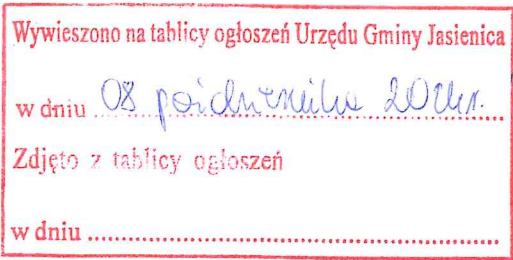 Wywieszono na tablicy ogłoszeń Urzędu Gminy Jasienica
w dniu 08 października
Zdjęto z tablicy ogłoszeń
w dniu ........................................